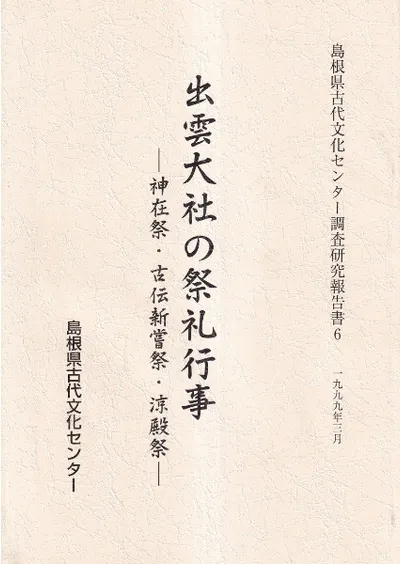 島根県古代文化センター調査研究報告書6
一九九九年三月
出雲大社の祭礼行事
―神在祭・古伝新嘗祭・涼殿祭―
島根県古代文化センター